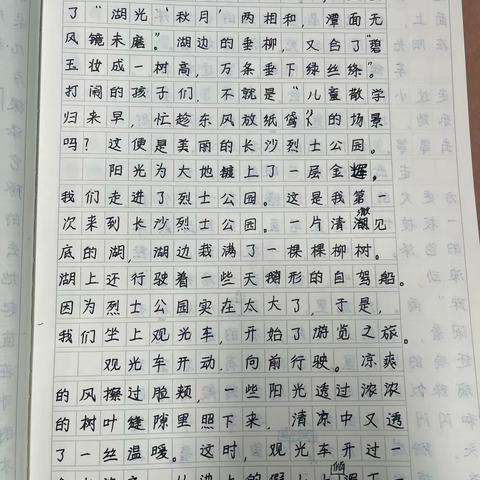 了“湖光‘秋月’两相和，潭面无
风镜未磨”。湖边的垂柳，又白了“碧
玉妆成一树高，万条垂下绿丝绦”。
打闹的孩子们，不就是“儿童散学
归来早，忙趁东风放纸鸢”的场景
吗？这便是美丽的长沙烈士公园。
阳光为大地镀上了一层金辉，
我们走进了烈士公园。这是我第一
次来到长沙烈士公园。一片清澈见
底的湖，湖边栽满了一棵棵柳树。
湖上还行驶着一些天鹅形的自驾船。
因为烈士公园实在太大了，于是，
我们坐上观光车，开始了游览之旅。
观光车开动，向前行驶。凉爽
的风擦过脸颊，一些阳光透过浓浓
的树叶缝隙里照下来，清凉中又透
了一丝温暖。这时，观光车开过一